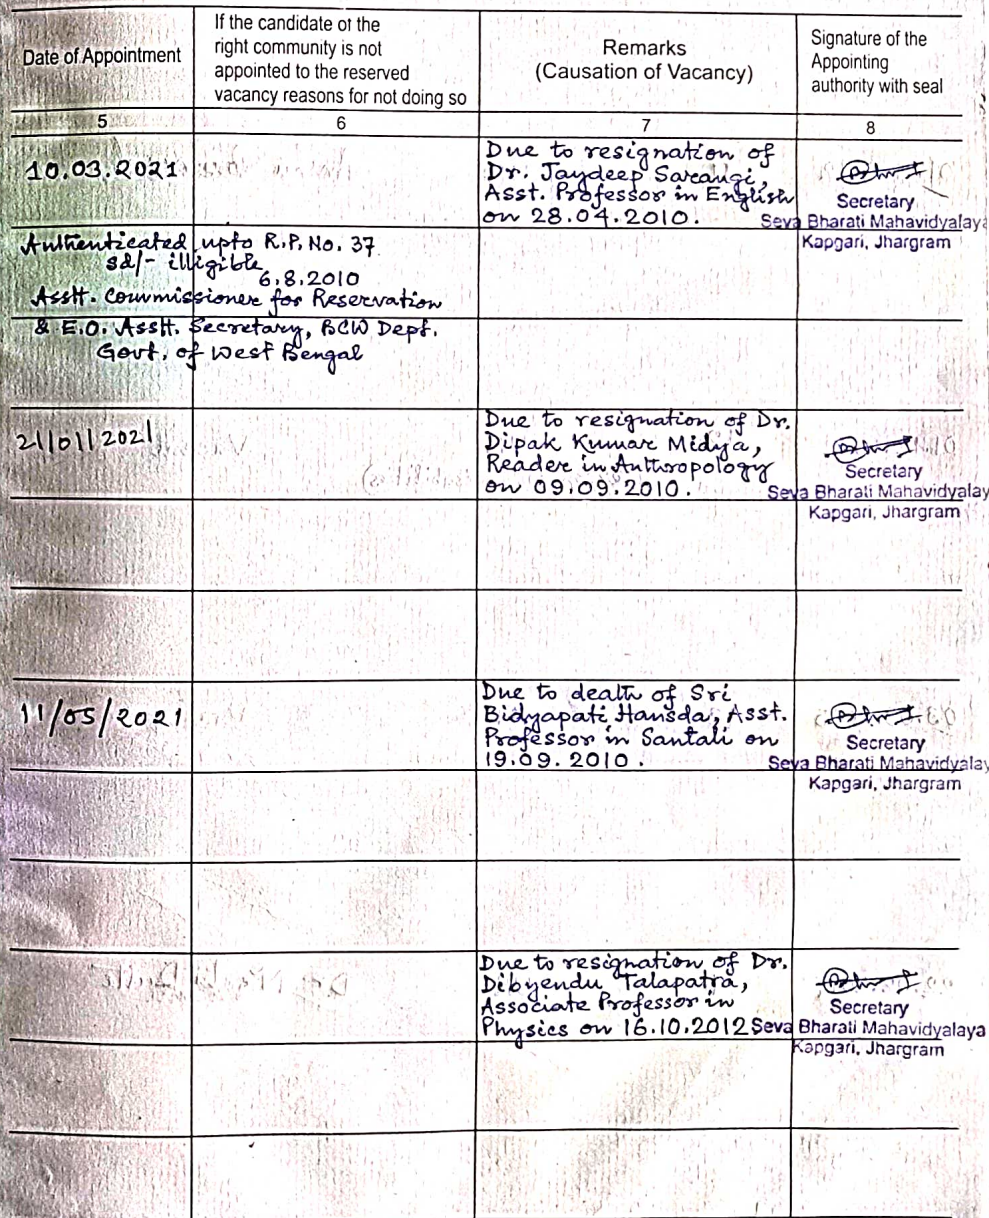 Date of Appointment
If the candidate of the
right community is not
appointed to the reserved
vacancy reasons for not doing so
Remarks
(Causation of Vacancy)
Signature of the
Appointing
authority with seal
5
6
7
8
10.03.2021
Due to resignation of
Dr. Jaydeep Sarangi,
Asst. Professor in English
on 28.04.2010.
Secretary
Seva Bharati Mahavidyalaya
Kapgari, Jhargram
Authenticated upto R.P. No. 37
sd/- illigible
6.8.2010
Asstt. Commissioner for Reservation
& E.O. Asstt. Secretary, BCW Dept.
Govt. of West Bengal
21/01/2021
Due to resignation of Dr.
Dipak Kumar Midya,
Reader in Anthropology
on 09.09.2010.
Secretary
Seva Bharati Mahavidyalay
Kapgari, Jhargram
11/05/2021
Due to death of Sri
Bidyapati Hansda, Asst.
Professor in Santali on
19.09.2010.
Secretary
Seva Bharati Mahavidyalay
Kapgari, Jhargram
Due to resignation of Dr.
Dibyendu Talapatra,
Associate Professor in
Physics on 16.10.2012
Secretary
Seva Bharati Mahavidyalaya
Kapgari, Jhargram